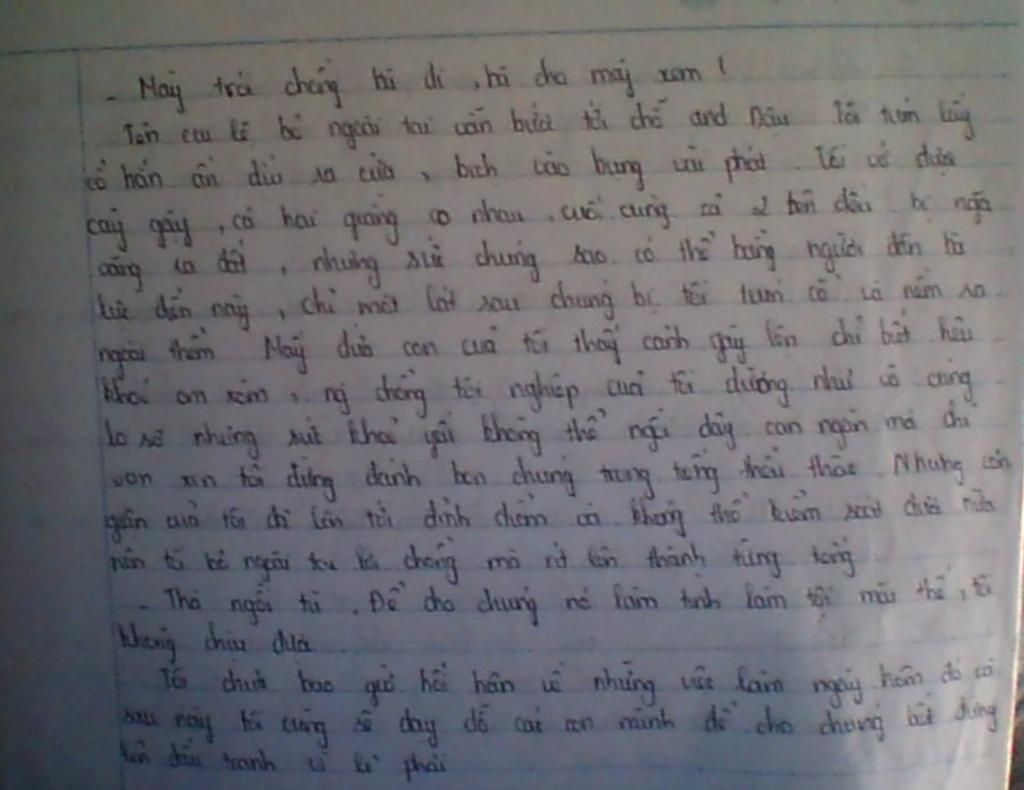 - Mày trói chồng bà đi, bà cho mày xem!
Tên cai lệ bỏ ngoài tai vẫn bước tới chỗ anh Dậu Tôi túm lấy
cổ hắn ấn dúi ra cửa, bịch vào bụng vài phát. Tôi vớ được
cây gậy, cả hai giằng co nhau. cuối cùng cả 2 tên đều bị ngã
văng ra đất, nhưng sức chúng sao có thể bằng người đàn bà
lực điền này, chỉ một lát sau chúng bị tôi túm cổ và ném ra
ngoài thềm Mấy đứa con của tôi thấy cảnh gây lộn chỉ biết kêu
khóc om xòm, ng chồng tội nghiệp của tôi dường như vô cùng
lo sợ nhưng sức khoẻ yếu không thể ngồi dậy can ngăn mà chỉ
van xin tôi đừng đánh bọn chúng trong tiếng thều thào. Nhưng cơn
giận của tôi đã lên tới đỉnh điểm và không thể kiểm soát được nữa
nên tôi bỏ ngoài tai lời chồng mà rít lên thành từng tiếng
- Thà ngồi tù. Để cho chúng nó làm tình làm tội mãi thế, tôi
không chịu được.
Tôi chưa bao giờ hối hận về những việc làm ngày hôm đó và
sau này tôi cũng sẽ dạy dỗ các con mình để cho chúng biết đứng
lên đấu tranh vì lẽ phải